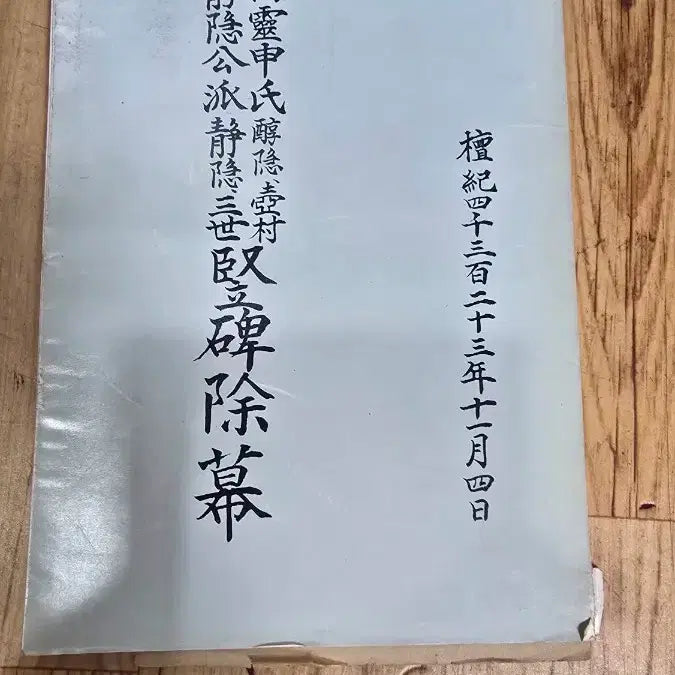 檀紀四千三百二十三年十一月四日
靈申氏醇隐、壺村
静隐公派静隐、三世竪碑除幕